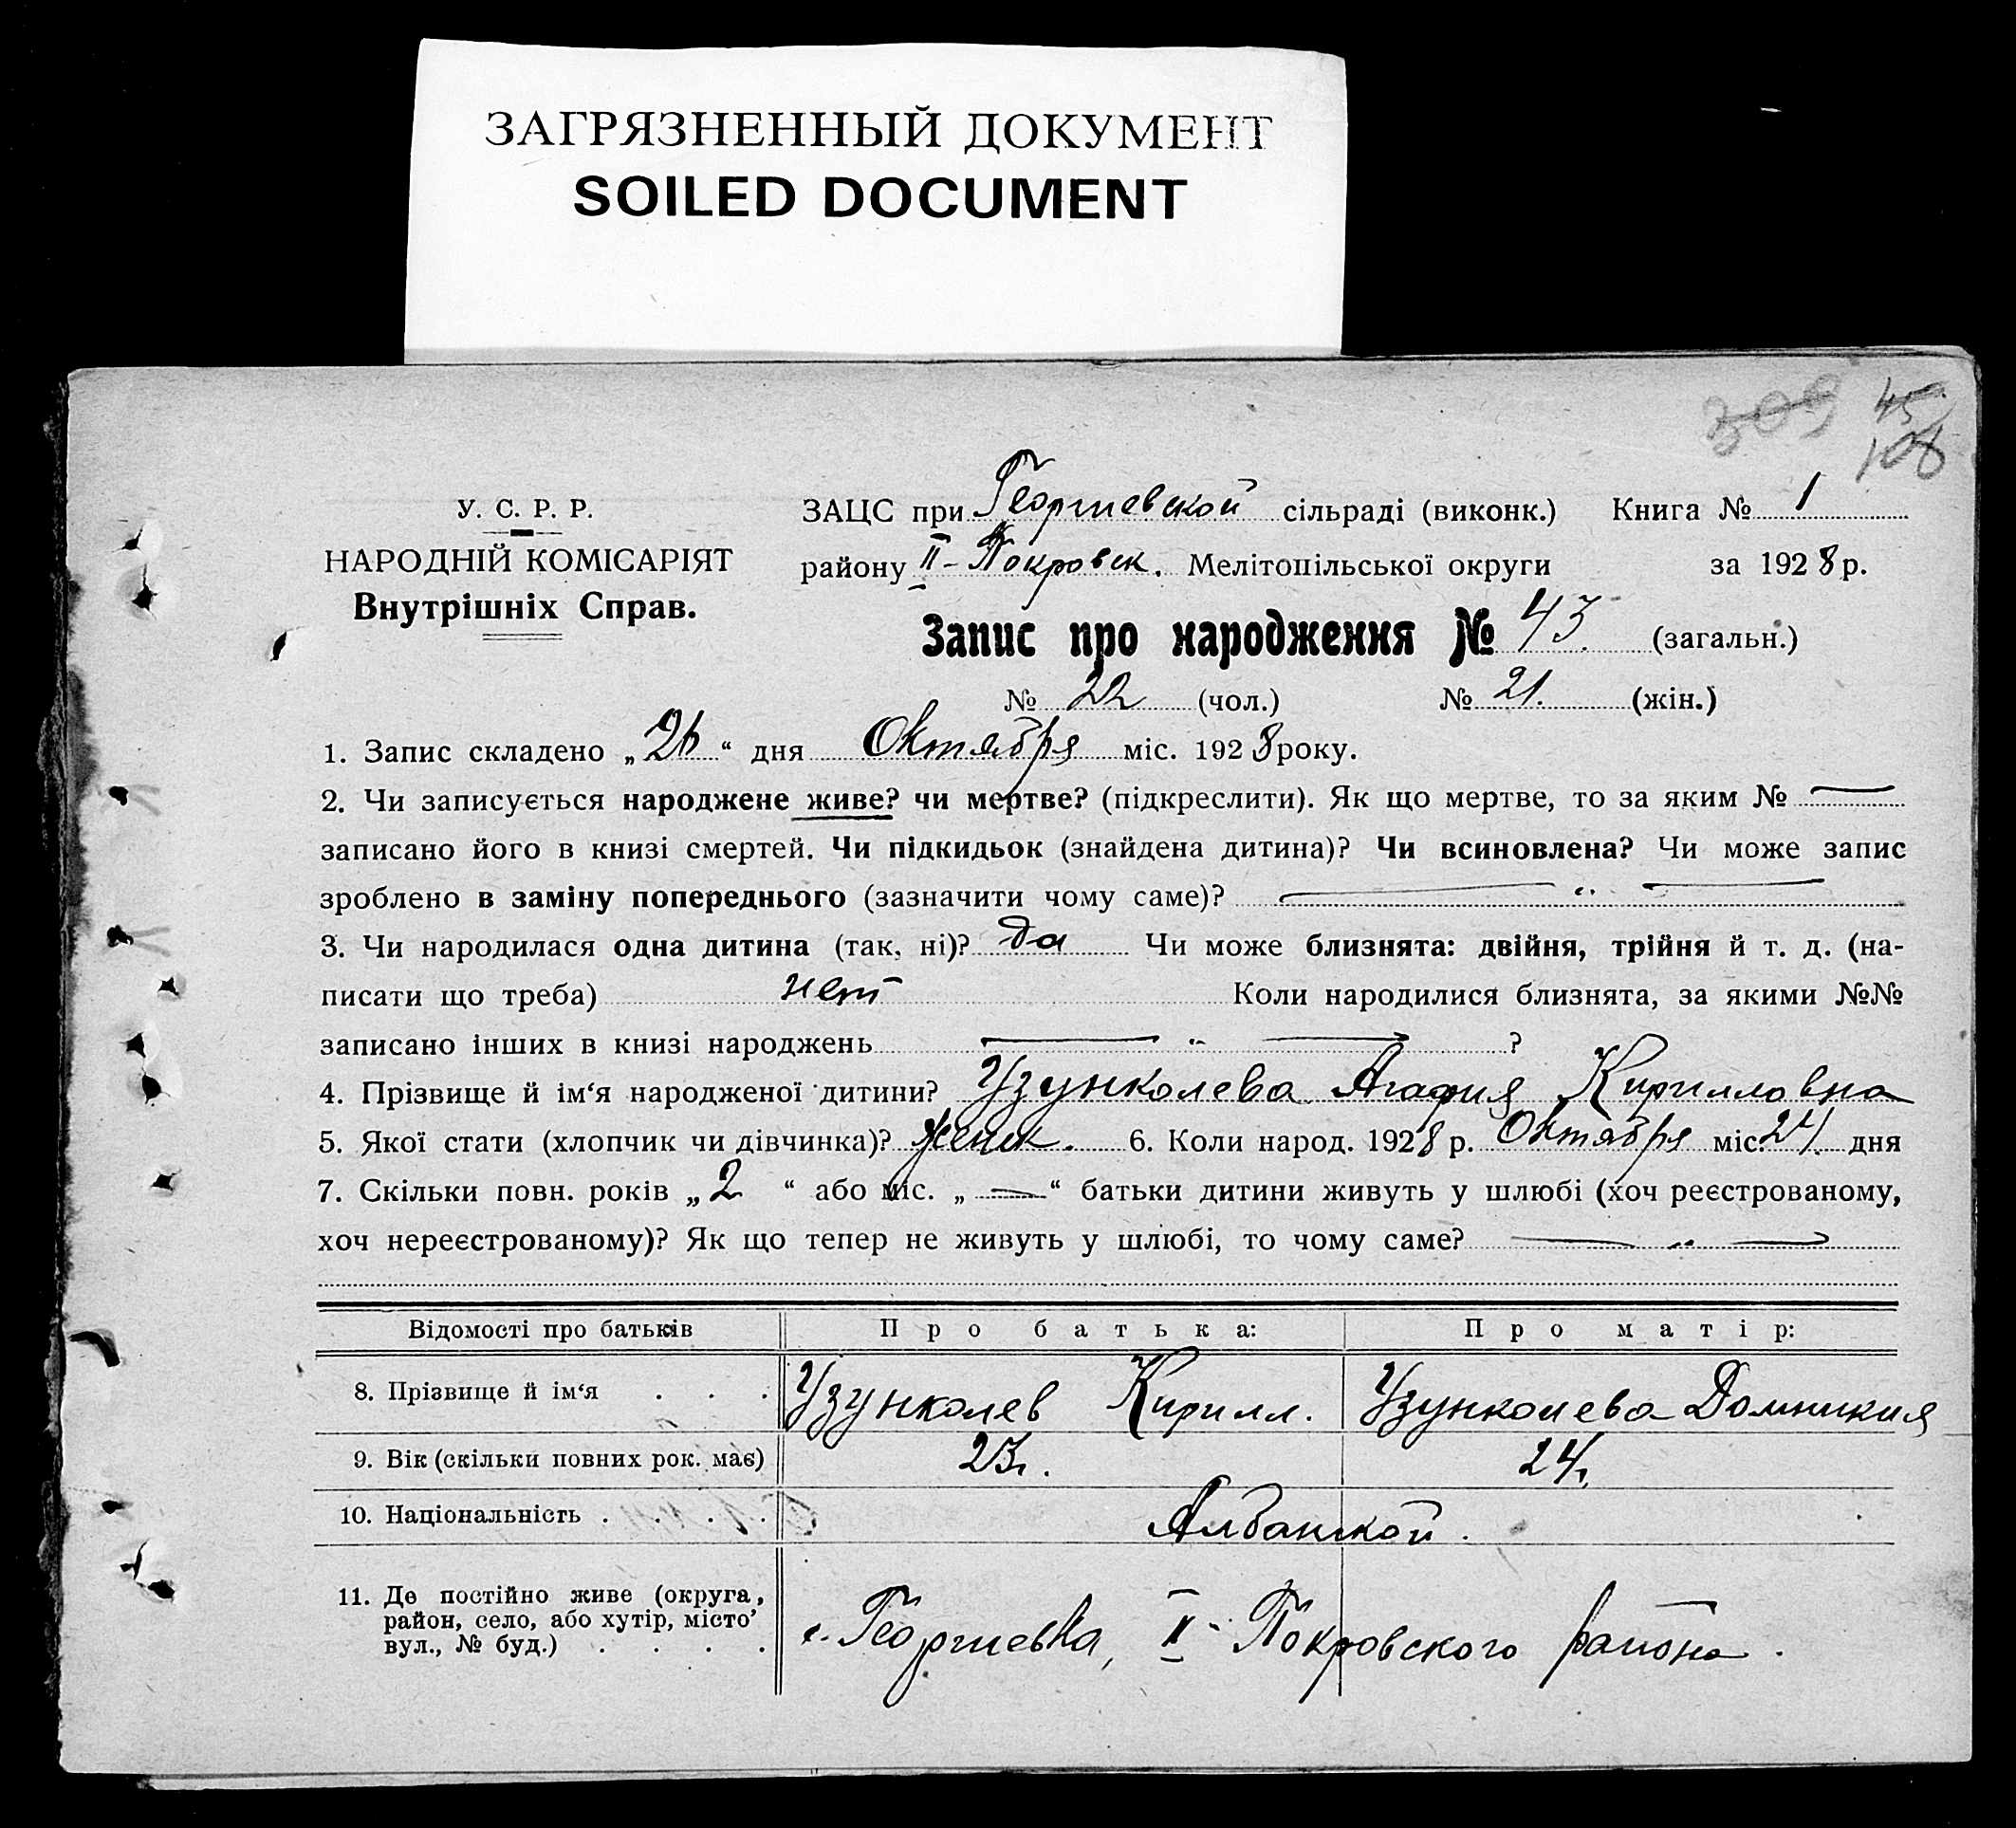 ЗАГРЯЗНЕННЫЙ ДОКУМЕНТ
SOILED DOCUMENT
309 45
108
У. С. Р. Р.
НАРОДНІЙ КОМІСАРІЯТ
Внутрішніх Справ.
ЗАЦС при Георгиевской сільраді (виконк.) Книга № 1
району II-Покровск. Мелітопільської округи за 1928 р.
Запис про народження № 43 (загальн.)
№ 22 (чол.) № 21. (жін.)
1. Запис складено „26“ дня Октября міс. 1928 року.
2. Чи записується народжене живе? чи мертве? (підкреслити). Як що мертве, то за яким № —
записано його в книзі смертей. Чи підкидьок (знайдена дитина)? Чи всиновлена? Чи може запис
зроблено в заміну попереднього (зазначити чому саме)? — „ —
3. Чи народилася одна дитина (так, ні)? да Чи може близнята: двійня, трійня й т. д. (на-
писати що треба) нет Коли народилися близнята, за якими №№
записано інших в книзі народжень — „ — ?
4. Прізвище й ім‘я народженої дитини? Узунколева Агафия Кирилловна
5. Якої стати (хлопчик чи дівчинка)? женск. 6. Коли народ. 1928 р. Октября міс. 24 дня
7. Скільки повн. років „2“ або міс. „—“ батьки дитини живуть у шлюбі (хоч реєстрованому,
хоч нереєстрованому)? Як що тепер не живуть у шлюбі, то чому саме? — „ —
Відомості про батьків Про батька: Про матір:
8. Прізвище й ім‘я . . . Узунколев Кирилл. Узунколева Домникия
9. Вік (скільки повних рок. має) 23г. 24г.
10. Національність . . . . Албанской.
11. Де постійно живе (округа,
район, село, або хутір, місто’
вул., № буд.) . . . . с. Георгиевка, II-Покровского района.